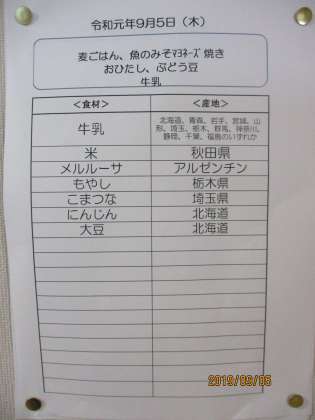 令和元年9月5日（木）
麦ごはん、魚のみそマヨネーズ焼き
おひたし、ぶどう豆
牛乳
＜食材＞ ＜産地＞
牛乳 北海道、青森、岩手、宮城、山
形、埼玉、栃木、群馬、神奈川、
静岡、千葉、福島のいずれか
米 秋田県
メルルーサ アルゼンチン
もやし 栃木県
こまつな 埼玉県
にんじん 北海道
大豆 北海道
2019/09/05